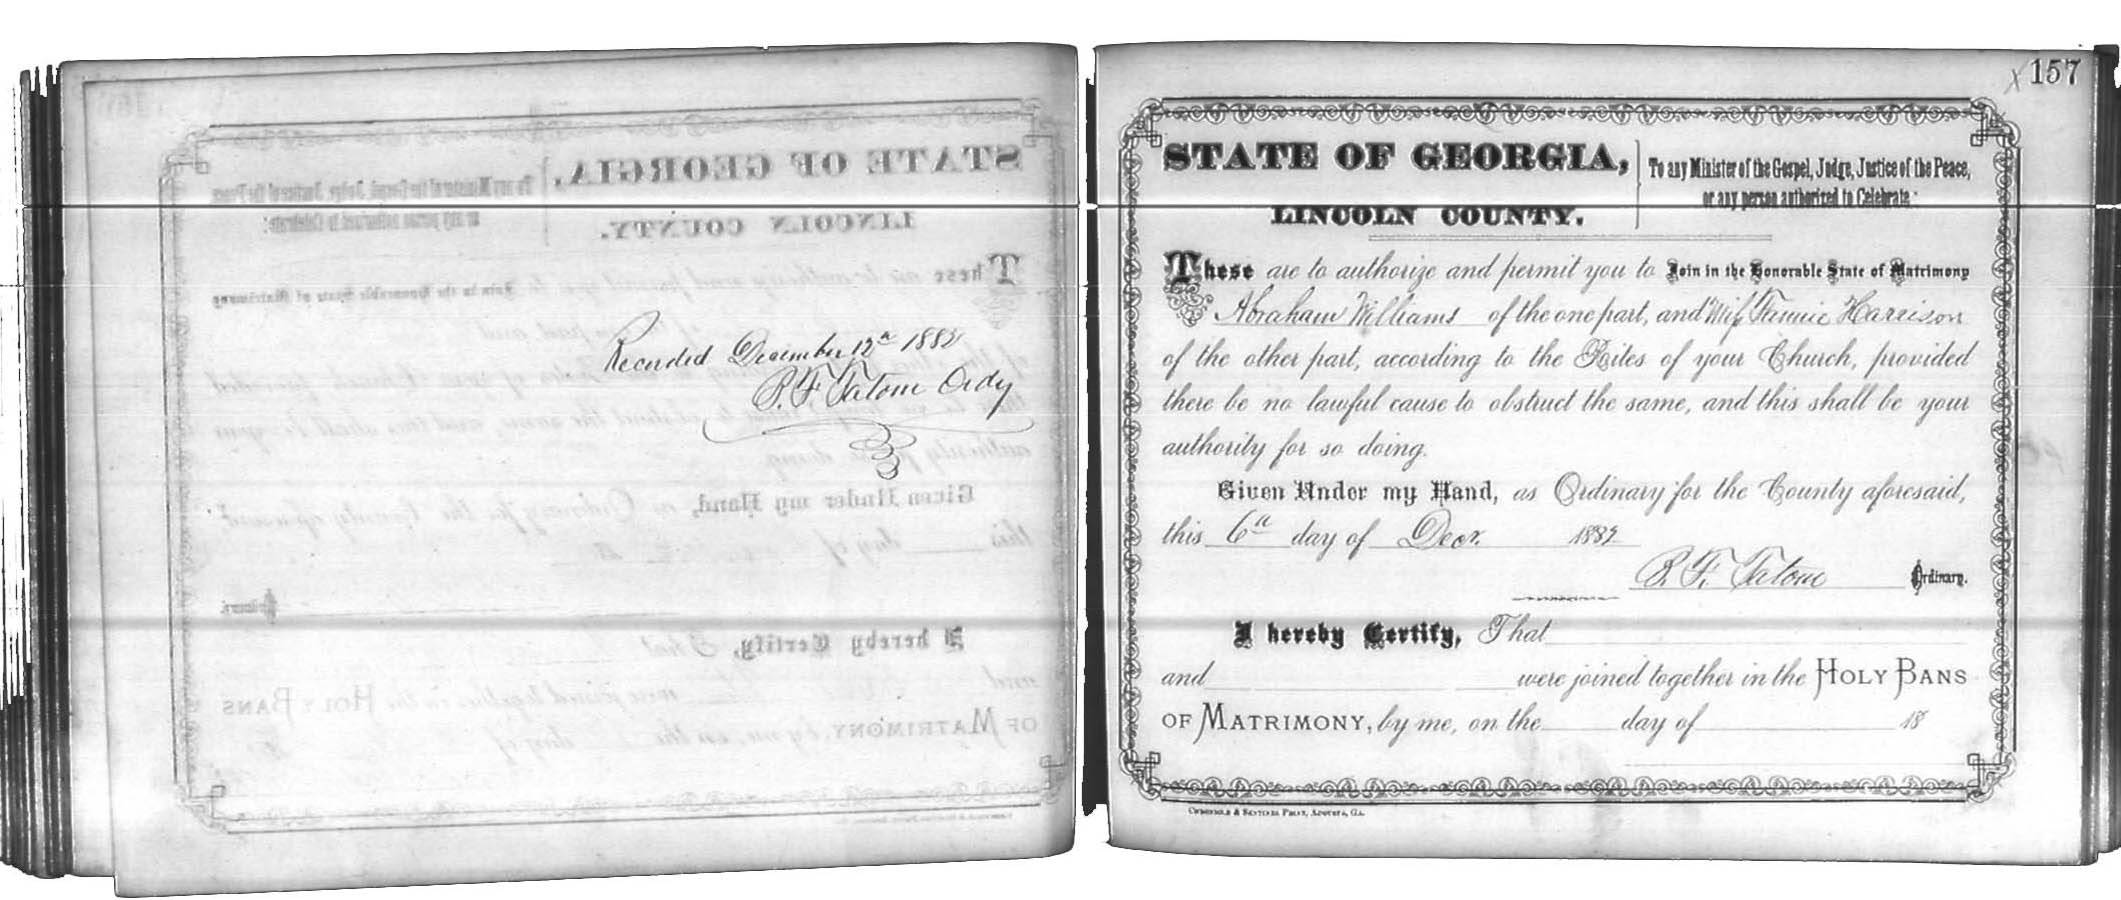 Recorded December 12th 1882
B. F. Tatom Ordy
157
STATE OF GEORGIA,
LINCOLN COUNTY.
To any Minister of the Gospel, Judge, Justice of the Peace,
or any person authorized to Celebrate:
These are to authorize and permit you to Join in the Honorable State of Matrimony
Abraham Williams of the one part, and Miss Fannie Harrison
of the other part, according to the Rites of your Church, provided
there be no lawful cause to obstruct the same, and this shall be your
authority for so doing.
Given Under my Hand, as Ordinary for the County aforesaid,
this 6th day of Decr. 1882
B. F. Tatom Ordinary.
I hereby Certify, That
and were joined together in the HOLY BANS
OF MATRIMONY, by me, on the day of 18
CHRONICLE & SENTINEL PRINT, AUGUSTA, GA.